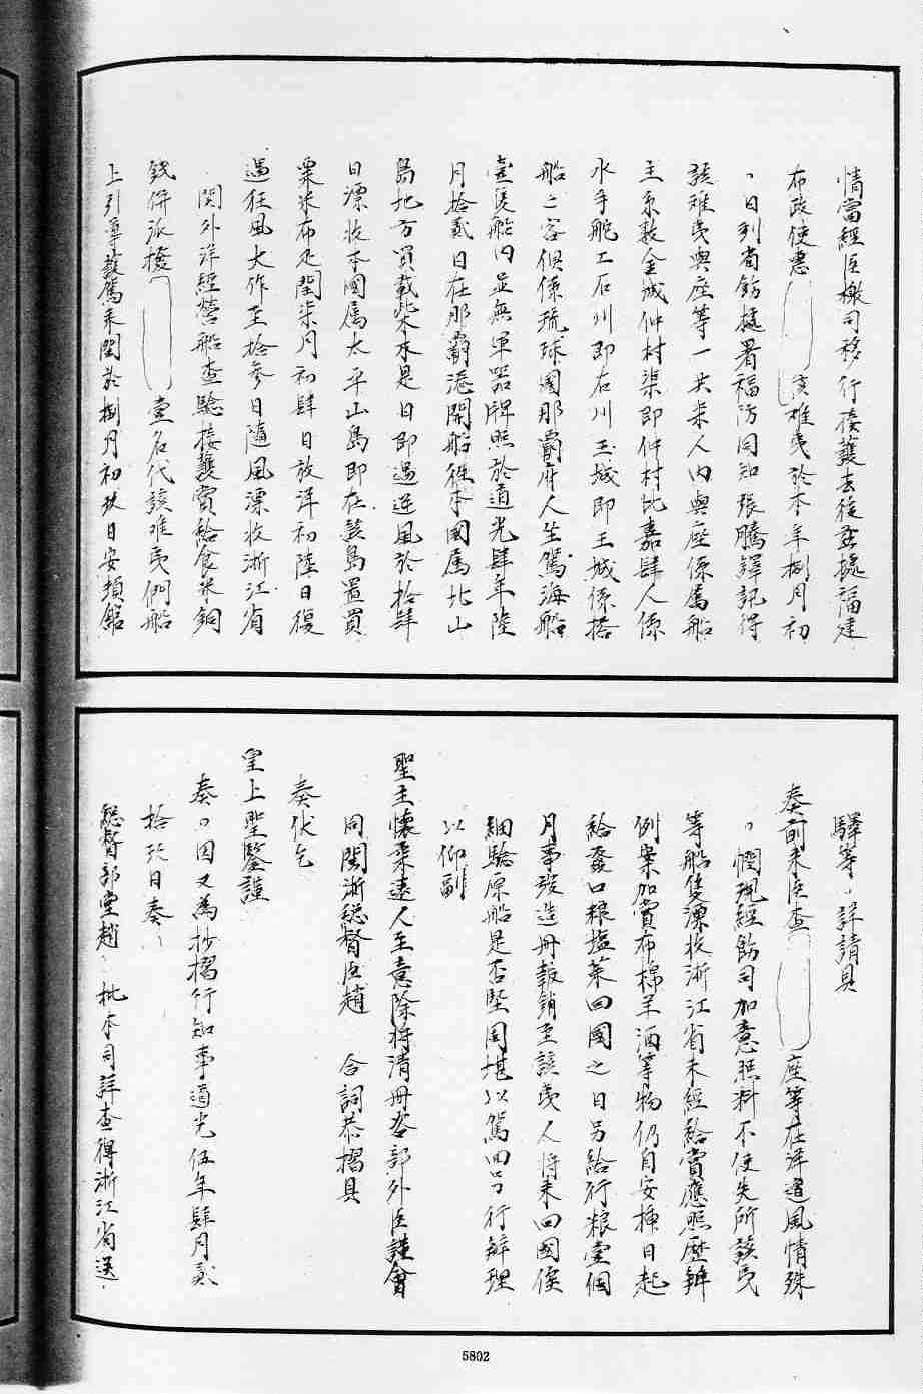 情當經臣檄司移行接護去後茲據福建
布政使惠 該難夷於本年捌月初
、日到省飭據署福防同知張騰譯訊得
該難夷與座等一共柒人內與座係屬船
主系數金城仲村渠即仲村比嘉肆人係
水手舵工石川即右川玉城即王城係搭
船之客俱係琉球國那霸府人坐駕海船
壹隻船內並無軍器牌照於道光肆年陸
月拾貳日在那霸港開船往本國屬北山
島地方買載柴木是日即遇逆風於拾肆
日漂收本國屬太平山島即在該島置買
粟米布疋閏柒月初肆日放洋初陸日復
遇狂風大作至拾參日隨風漂收浙江省
関外洋經營船查驗接護賞給食米銅
錢併派撥 壹名代該难夷們船
上引導護駕来閩於捌月初玖日安頓館
驛等、詳請具
奏前来臣查 座等在洋遭風情殊
、憫現經飭司加意照料不使失所該夷
等船隻漂收浙江省未經給賞應照歷辦
例案加賞布棉羊酒等物仍自安插日起
給鹽口粮塩菜回國之日另給行粮壹個
月事竣造冊報銷至該夷人將来回國俟
細驗原船是否堅固堪以駕回另行辦理
以仰副
聖主懷柔遠人至意除將清冊咨部外臣謹會
同閩浙総督臣趙 合詞恭摺具
奏伏乞
皇上聖鑒謹
奏、因又為抄摺行知事道光伍年肆月貳
拾玖日奏、
総督部堂趙、批本司詳查得浙江省送、
5802